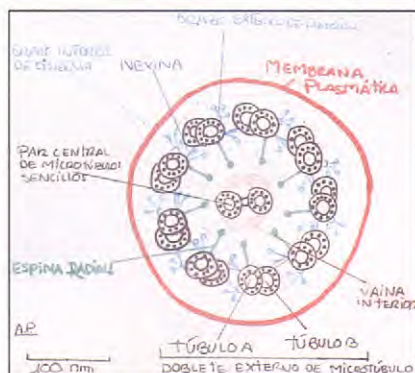 BRAZO EXTERNO DE DINEINA
BRAZO INTERNO
DE DINEINA
NEXINA
MEMBRANA
PLASMÁTICA
PAR CENTRAL
DE MICROTÚBULOS
SENCILLOS
ESPINA RADIAL
VAINA
INTERIOR
TÚBULO A
TÚBULO B
A.P.
100 nm
DOBLETE EXTERNO DE MICROTÚBULO